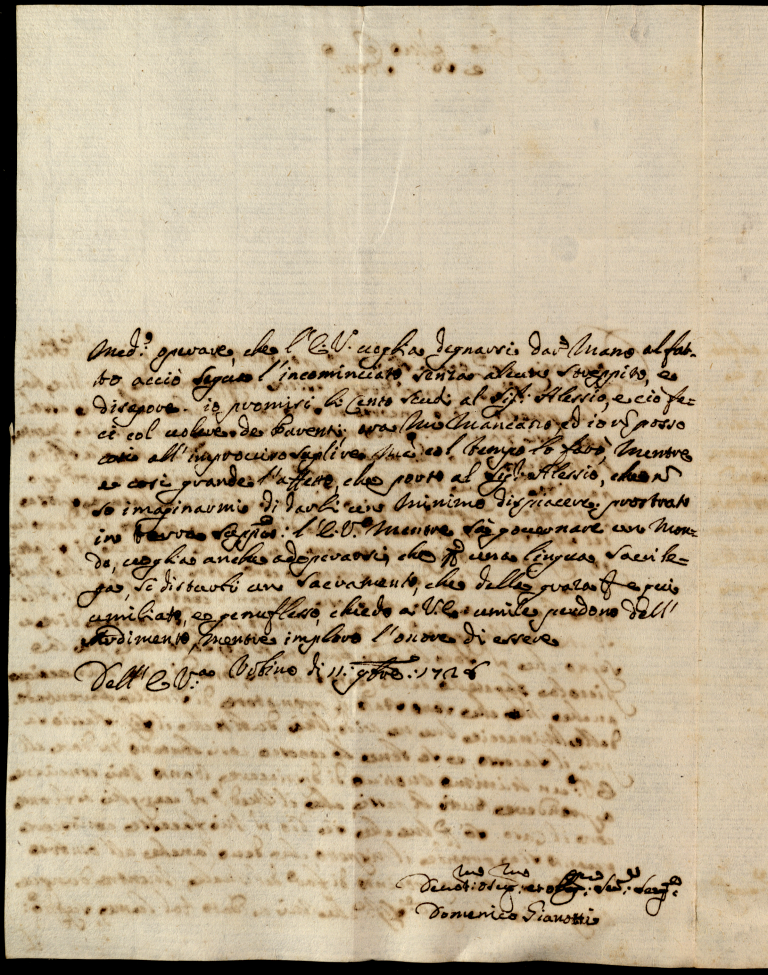 Med.º operare, che l'E.V. voglia degnarsi dar Mano al fat-
to acciò segua l'incominciato senza alcun strepito, e
disapore. io promisi li Cento scudi al Sig.r Alessio, e ciò fe-
ci col volere de Parenti, ora Mi Mancano, ed io nõ posso
così all'improviso suplire, Mà col tempo lo farò, Mentre
è così grande l'affetto, che porto al Sig.r Alessio, che nõ
so imaginarmi di darli un Minimo dispiacere. prostrato
in terra l'E.V. Mentre sà governare un Mon-
do, voglia anche adoperarsi, che una lingua sacrile-
ga, si disturbi un Sacramento, che e qui
umiliato, e genuflesso, chiedo a V.E. umile perdono dell'
Ardimento, Mentre imploro l'onore di essere
Dell'E.V. Urbino di 11. 9bre. 1726
Devotiss.mo et Obblig.mo Ser.e
Domenico Gianotti